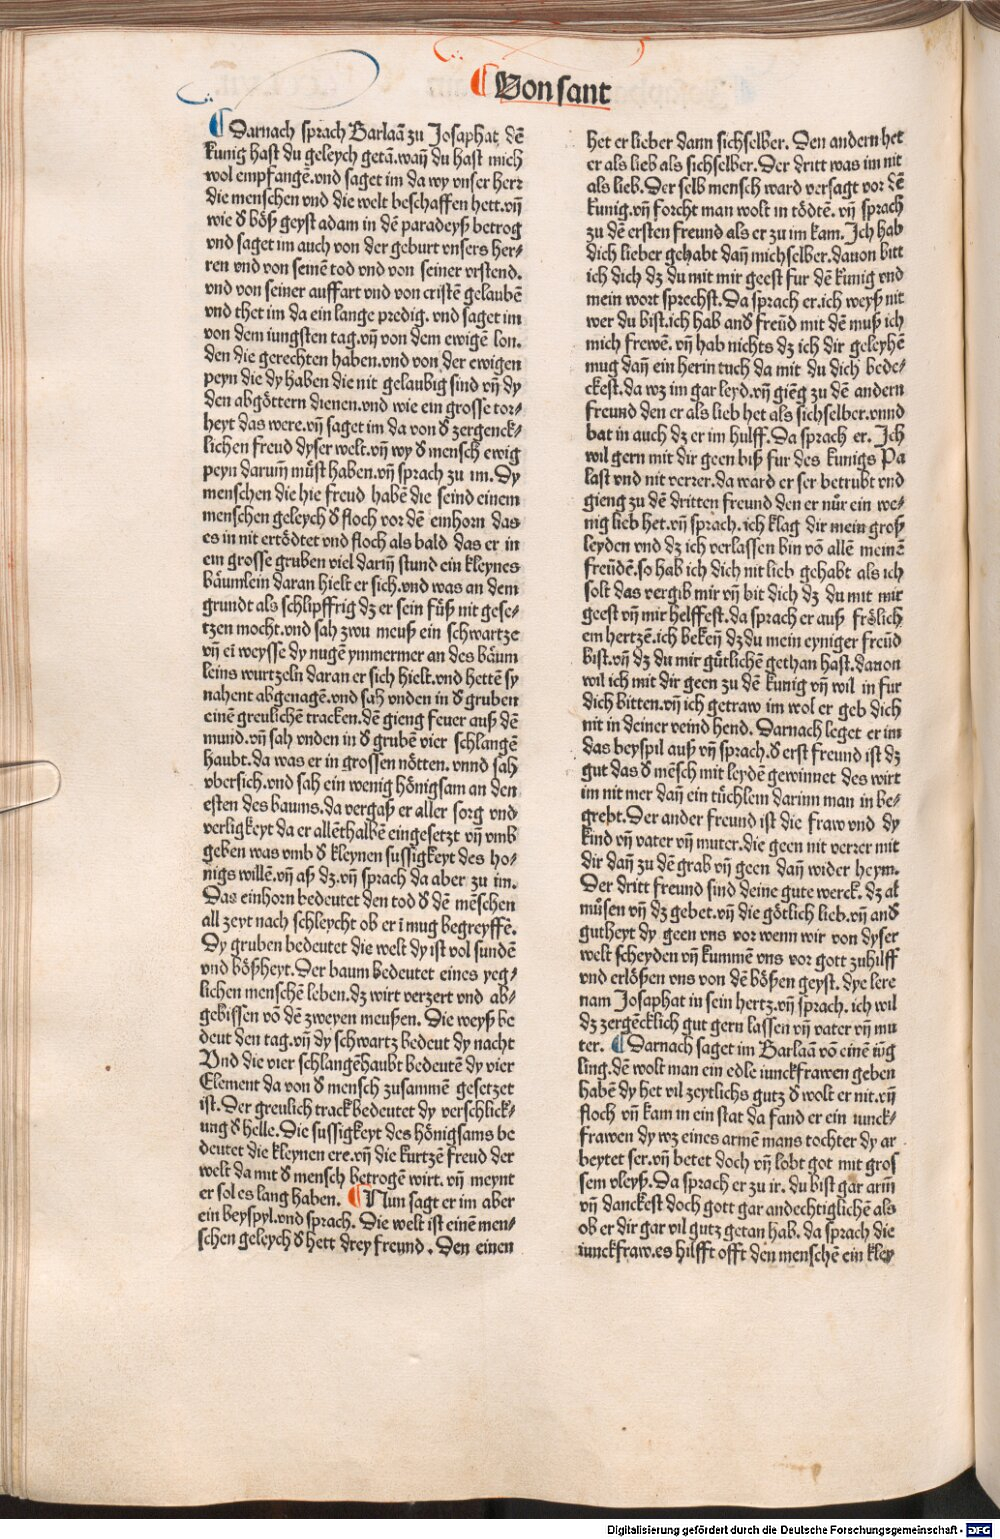 ¶ Von sant
¶ Darnach sprach Barlaā zu Josaphat, dē
kunig hast du geleych getā.wañ du hast mich
wol empfangē.vnd saget im da wy vnser herr
die menschen vnd die welt beschaffen hett.vñ
wie d̓ böß geyst adam in dē paradeyß betrog
vnd saget im auch von der geburt vnsers her⸗
ren vnd von seinē tod vnd von seiner vrstend.
vnd von seiner auffart vnd von cristē gelaubē
vnd thet im da ein lange predig. vnd saget im
von dem iungsten tag.vñ von dem ewigē lon.
den die gerechten haben.vnd von der ewigen
peyn die dy haben die nit gelaubig sind vñ dy
den abgöttern dienen.vnd wie ein grosse tor⸗
heyt das were.vñ saget im da von d̓ zergenck⸗
lichen freud dyser welt.vñ wy d̓ mensch ewig
peyn darumͫ müst haben.vñ sprach zu im. Dy
menschen die hie freud habē die seind einem
menschen geleych d̓ floch vor dē einhorn das
es in nit ertödtet vnd floch als bald das er in
ein grosse gruben viel dariñ stund ein kleynes
bäumlein daran hielt er sich.vnd was an dem
grundt als schlipffrig dz er sein füß nit gese⸗
tzen mocht.vnd sah zwu meuß ein schwartze
vñ eī weysse dy nugē ymmermer an des bäum
leins wurtzeln daran er sich hielt.vnd hettē sy
nahent abgenagē.vnd sah vnden in d̓ gruben
einē greulichē tracken.dē gieng feuer auß dē
mund.vñ sah vnden in d̓ grubē vier schlangē
haubt.da was er in grossen nötten.vnnd sah
vbersich.vnd sah ein wenig hönigsam an den
esten des baums.da vergaß er aller sorg vnd
verligkeyt da er allēthalbē eingesetzt vñ vmb
geben was vmb d̓ kleynen sussigkeyt des ho⸗
nigs willē.vñ aß dz.vñ sprach da aber zu im.
Das einhorn bedeutet den tod d̓ dē mēschen
all zeyt nach schleycht ob er ī mug begreyffē.
Dy gruben bedeutet die welt dy ist vol sundē
vnd bößheyt.Der baum bedeutet eines yeg⸗
lichen menschē leben.dz wirt verzert vnd ab⸗
gebissen vō dē zweyen meußen. Die weyß be
deut den tag.vñ dy schwartz bedeut dy nacht
Vnd die vier schlangēhaubt bedeutē dy vier
Element da von d̓ mensch zusammē gesetzet
ist.Der greulich track bedeutet dy verschlick⸗
ung d̓ helle.Die sussigkeyt des hönigsams be
deutet die kleynen ere.vñ die kurtzē freud der
welt da mit d̓ mensch betrogē wirt. vñ meynt
er sol es lang haben. ¶ Nun sagt er im aber
ein beyspyl.vnd sprach. Die welt ist einē men⸗
schen geleych d̓ hett drey freund . Den einen
het er lieber dann sichselber. Den andern het
er als lieb als sichselber.Der dritt was im nit
als lieb.Der selb mensch ward versagt vor dē
kunig.vñ forcht man wolt in tödtē. vñ sprach
zu dē ersten freund als er zu im kam.Ich hab
dich lieber gehabt dañ michselber.dauon bitt
ich dich dz du mit mir geest fur dē kunig vnd
mein wort sprechst.Da sprach er.ich weyß nit
wer du bist.ich hab and̓ freūd mit dē muß ich
mich frewē. vñ hab nichts dz ich dir geleyhē
mug dañ ein herin tuch da mit du dich bede⸗
ckest.da wz im gar leyd.vñ gieng zu dē andern
freund den er als lieb het als sichselber.vnnd
bat in auch dz er im hulff.Da sprach er. Ich
wil gern mit dir geen biß fur des kunigs Pa
last vnd nit verrer.da ward er ser betrubt vnd
gieng zu dē dritten freund den er nŭr ein we⸗
nig lieb het.vñ sprach.ich klag dir mein groß
leyden vnd dz ich verlassen bin vō allē meinē
freūdē.so hab ich dich nit lieb gehabt als ich
solt das vergib mir vñ bit dich dz du mit mir
geest vñ mir helffest.da sprach er auß frölich
em hertzē.ich bekeñ dz du mein eyniger freūd
bist.vñ dz du mir gütlichē gethan hast.dauon
wil ich mit dir geen zu dē kunig vñ wil in fur
dich bitten.vñ ich getraw im wol er geb dich
nit in deiner veind hend. Darnach leget er im
das beyspil auß vñ sprach.d̓ erst freund ist dz
gut das d̓ mēsch mit leydē gewinnet des wirt
im nit mer dañ ein tüchlem darinn man in be⸗
grebt.Der ander freund ist die fraw vnd dy
kind vñ vater vñ muter.die geen nit verrer mit
dir dañ zu dē grab vñ geen dañ wider heym.
Der dritt freund sind deine gute werck. dz al
müsen vñ dz gebet.vñ die götlich lieb.vñ and̓
gutheyt dy geen vns vor wenn wir von dyser
welt scheyden vñ kummē vns vor gott zuhilff
vnd erlößen vns von dē bößen geyst. dye lere
nam Josaphat in sein hertz.vñ sprach. ich wil
dz zergēcklich gut gern lassen vñ vater vñ mu
ter. ¶ Darnach saget im Barlaā vō einē iūg
ling.dē wolt man ein edle iunckfrawen geben
habē dy het vil zeytlichs gutz d̓ wolt er nit.vñ
floch vñ kam in ein stat da fand er ein iunck⸗
frawen dy wz eines armē mans tochter dy ar
beytet ser.vñ betet doch vñ lobt got mit gros
sem vleyß.Da sprach er zu ir. du bist gar arm̄
vñ danckest doch gott gar andechtiglichē als
ob er dir gar vil gutz getan hab. da sprach die
iunckfraw.es hilfft offt den menschē ein kley
Digitalisierung gefördert durch die Deutsche Forschungsgemeinschaft - DFG